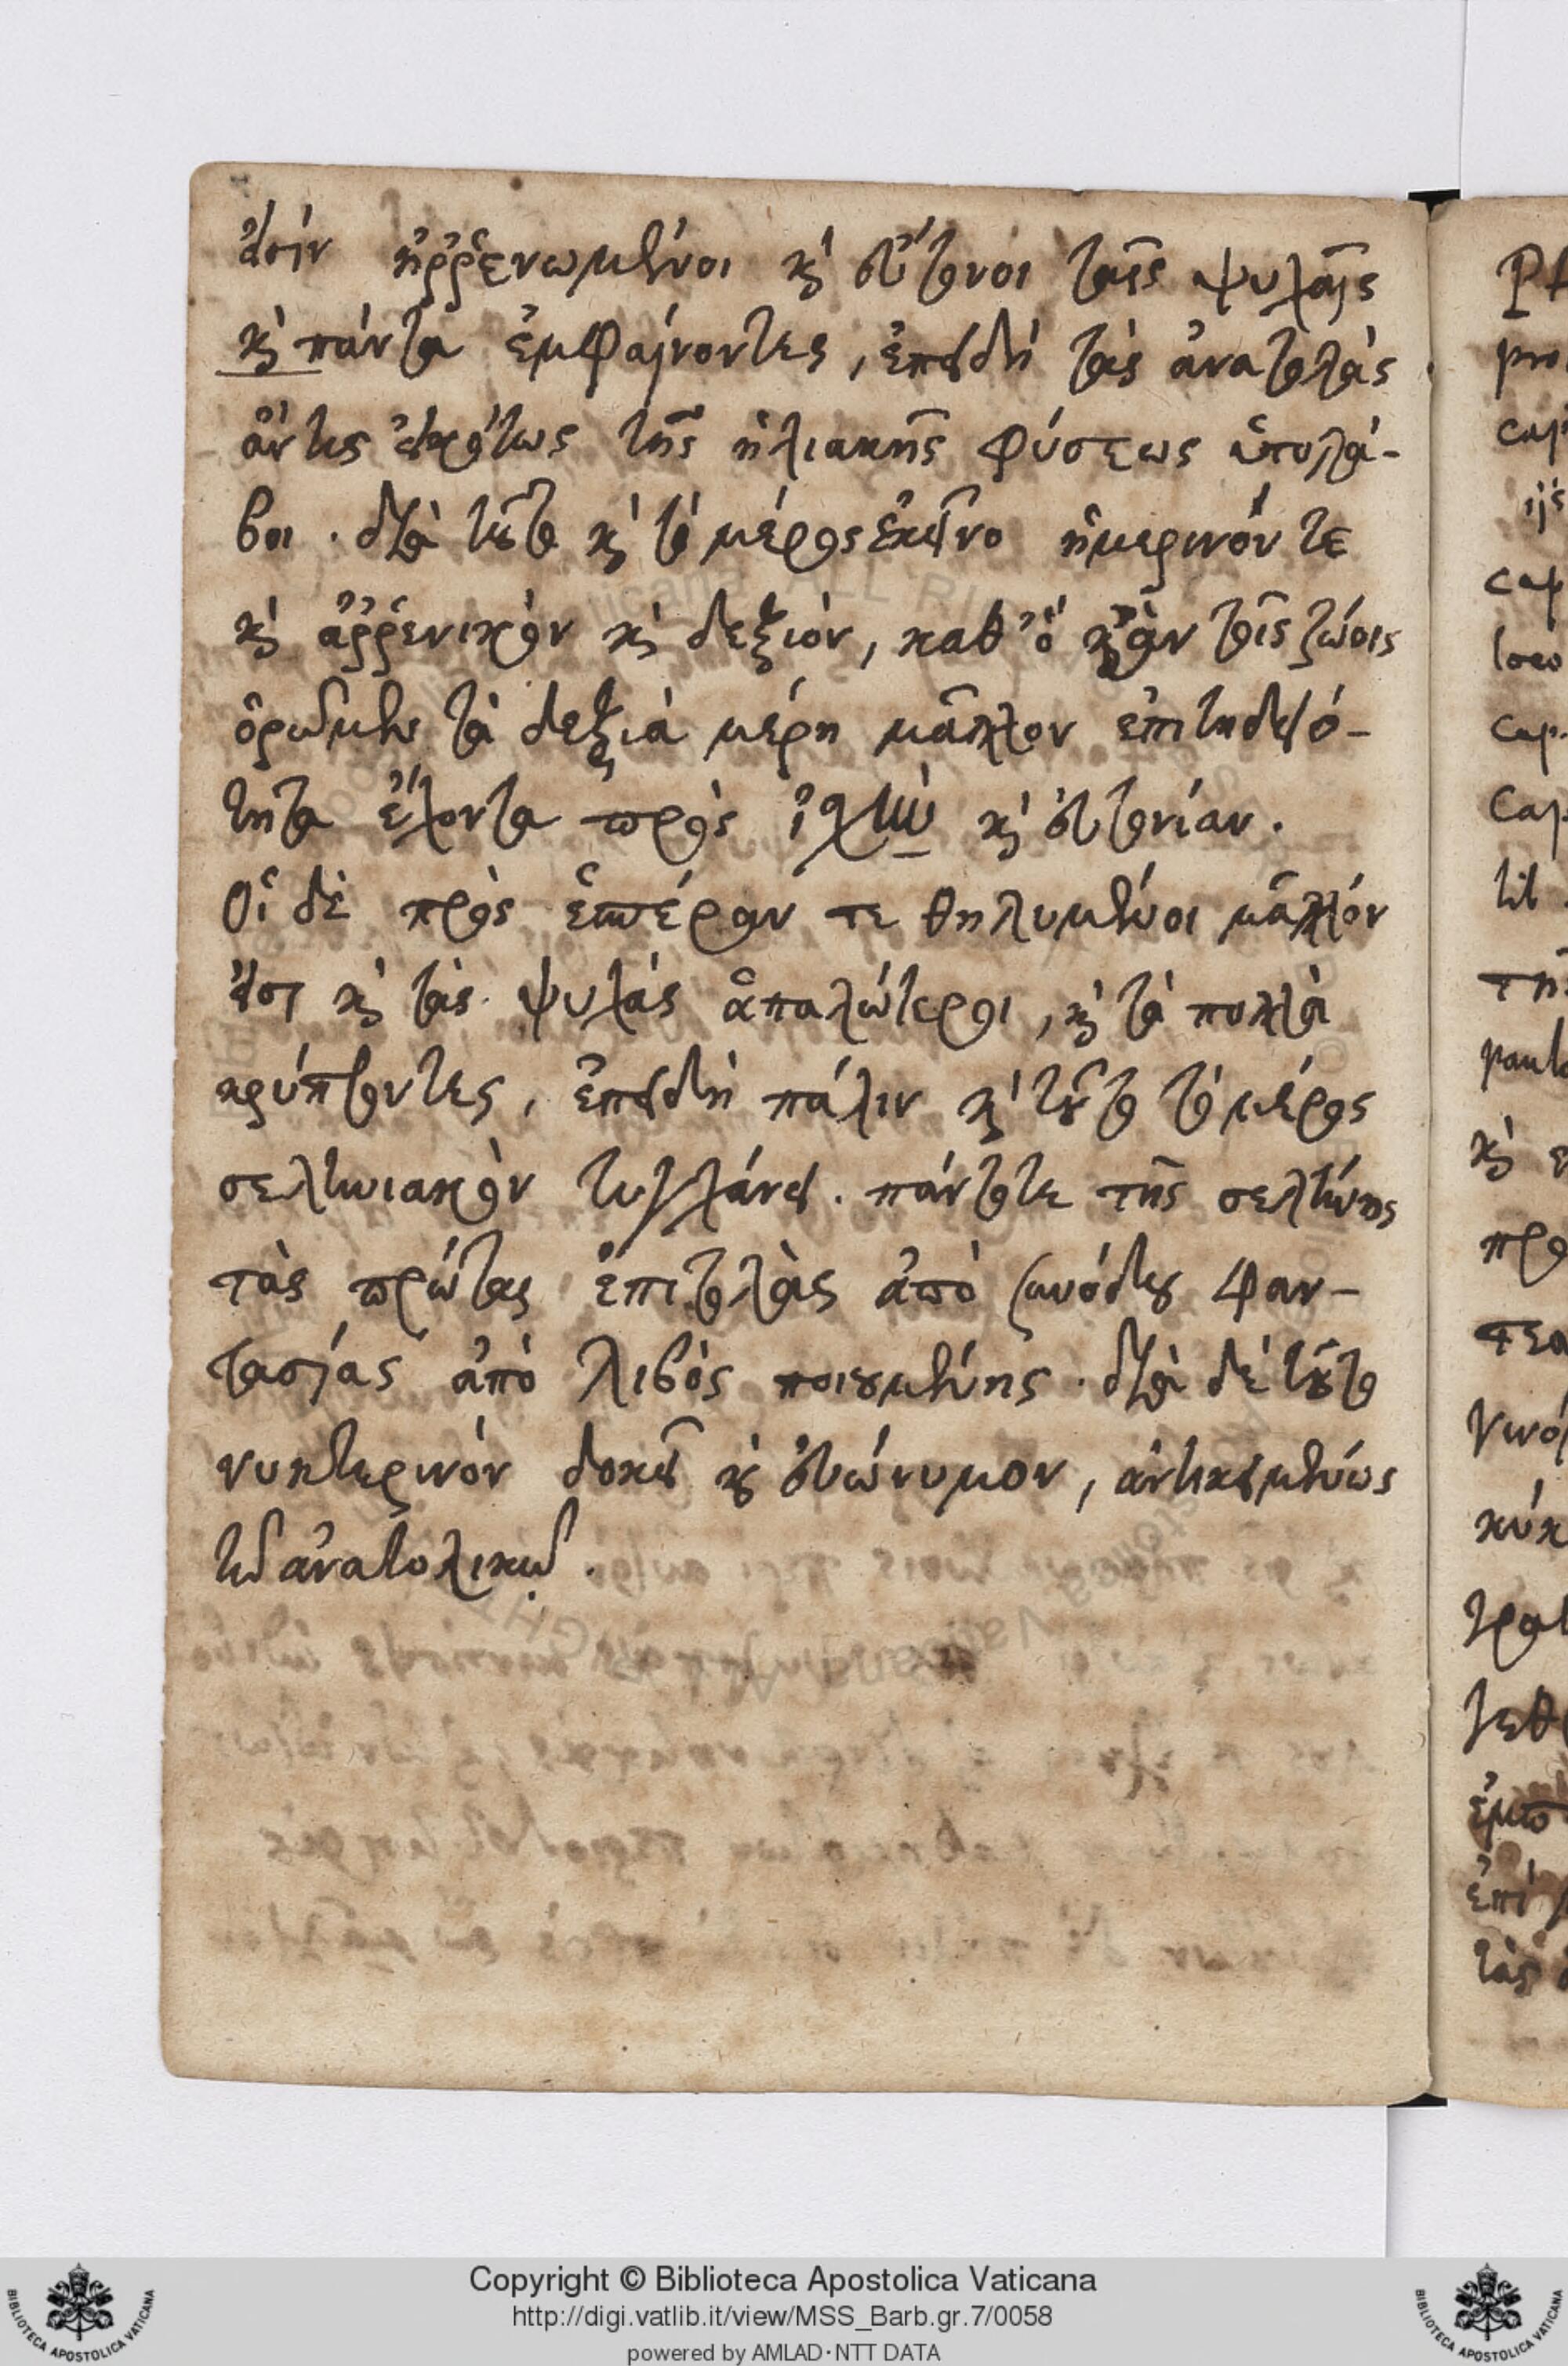 εἰσὶν ἠῤῥενωμένοι καὶ εὔτονοι ταῖς ψυχαῖς
καὶ πάντα ἐμφαίνοντες, ἐπειδὴ τὰς ἀνατολὰς
ἄν τις εἰκότως τῆς ἡλιακῆς φύσεως ὑπολά-
βοι. διὰ τοῦτο καὶ τὸ μέρος ἐκεῖνο ἡμερινόν τε
καὶ ἀῤῥενικὸν καὶ δεξιόν, καθ' ὃ κἀν τοῖς ζώοις
ὁρῶμεν τὰ δεξιὰ μέρη μᾶλλον ἐπιτηδειό-
τητα ἔχοντα πρὸς ἰσχὺν καὶ εὐτονίαν.
Οἱ δὲ πρὸς ἑσπέραν τε θηλυμένοι μᾶλλόν
εἰσι καὶ τὰς ψυχὰς ἁπαλώτεροι, καὶ τὰ πολλὰ
κρύπτοντες, ἐπειδὴ πάλιν καὶ τοῦτο τὸ μέρος
σεληνιακὸν τυγχάνει. πάντοτε τῆς σελήνης
τὰς πρώτας ἐπιτολὰς ἀπὸ συνόδου φαν-
τασίας ἀπὸ λιβὸς ποιουμένης. διὰ δὲ τοῦτο
νυκτερινὸν δοκεῖ καὶ εὐώνυμον, ἀντικειμένως
τῷ ἀνατολικῷ.
Copyright © Biblioteca Apostolica Vaticana
http://digi.vatlib.it/view/MSS_Barb.gr.7/0058
powered by AMLAD·NTT DATA
BIBLIOTECA APOSTOLICA VATICANA
BIBLIOTECA APOSTOLICA VATICANA